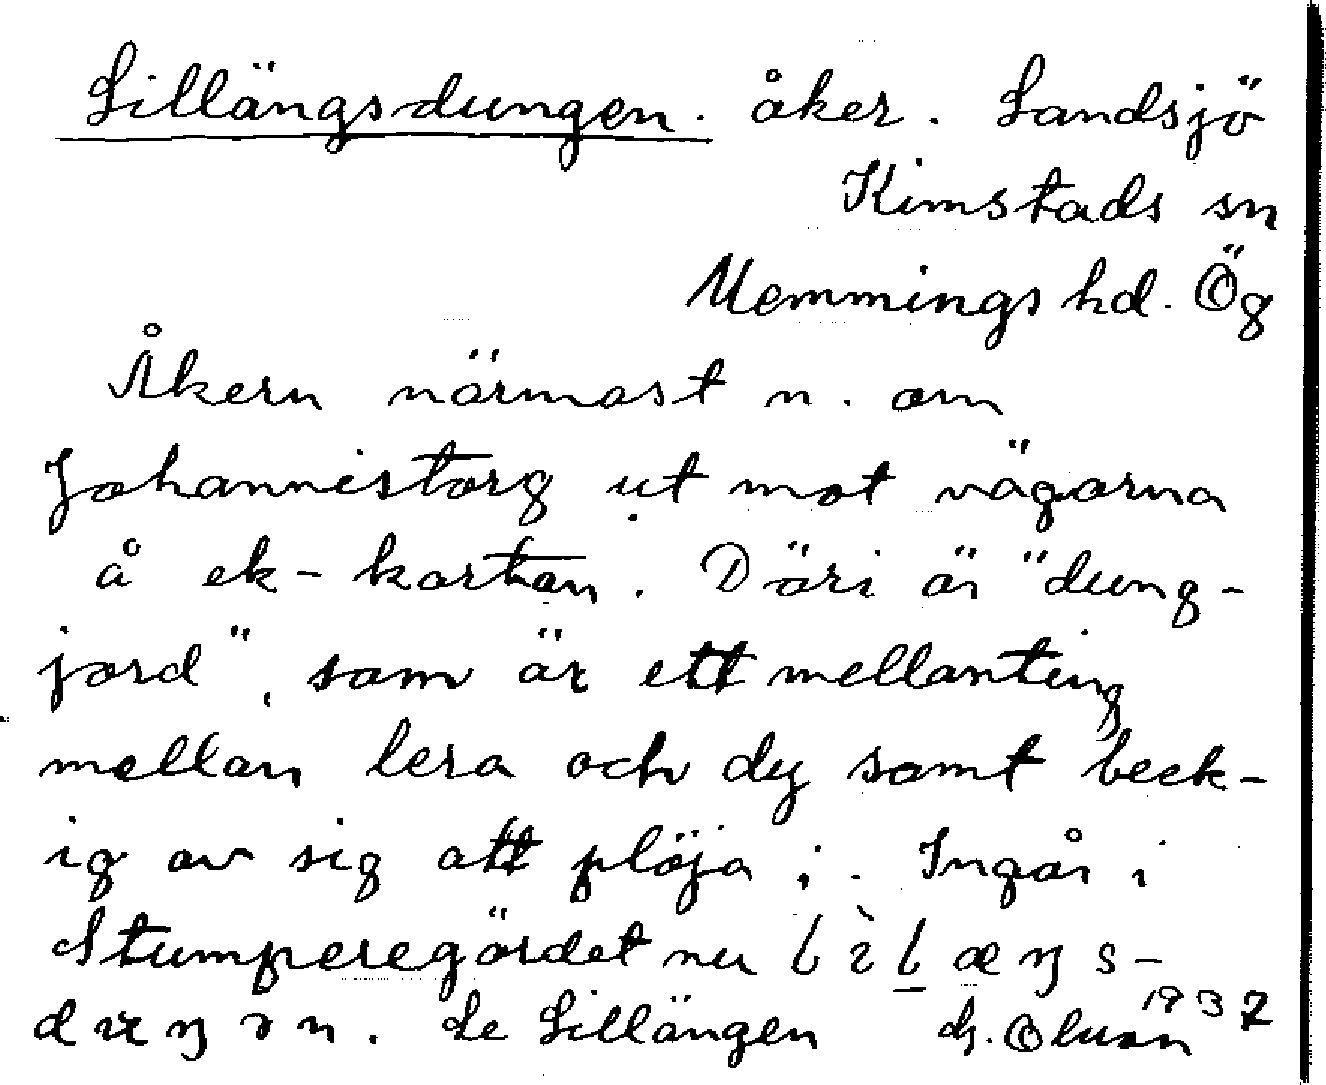 Lillängsdungen. åker. Landsjö
Kimstads sn
Memmings hd. Ög
Åkern närmast n. om
Johannistorg ut mot vägarna
å ek-kartan. Däri är "dung-
jord", som är ett mellanting
mellan lera och dy samt beck-
ig av sig att plöja i. Ingår i
Stumperegärdet nu
Se Lillängen 1937